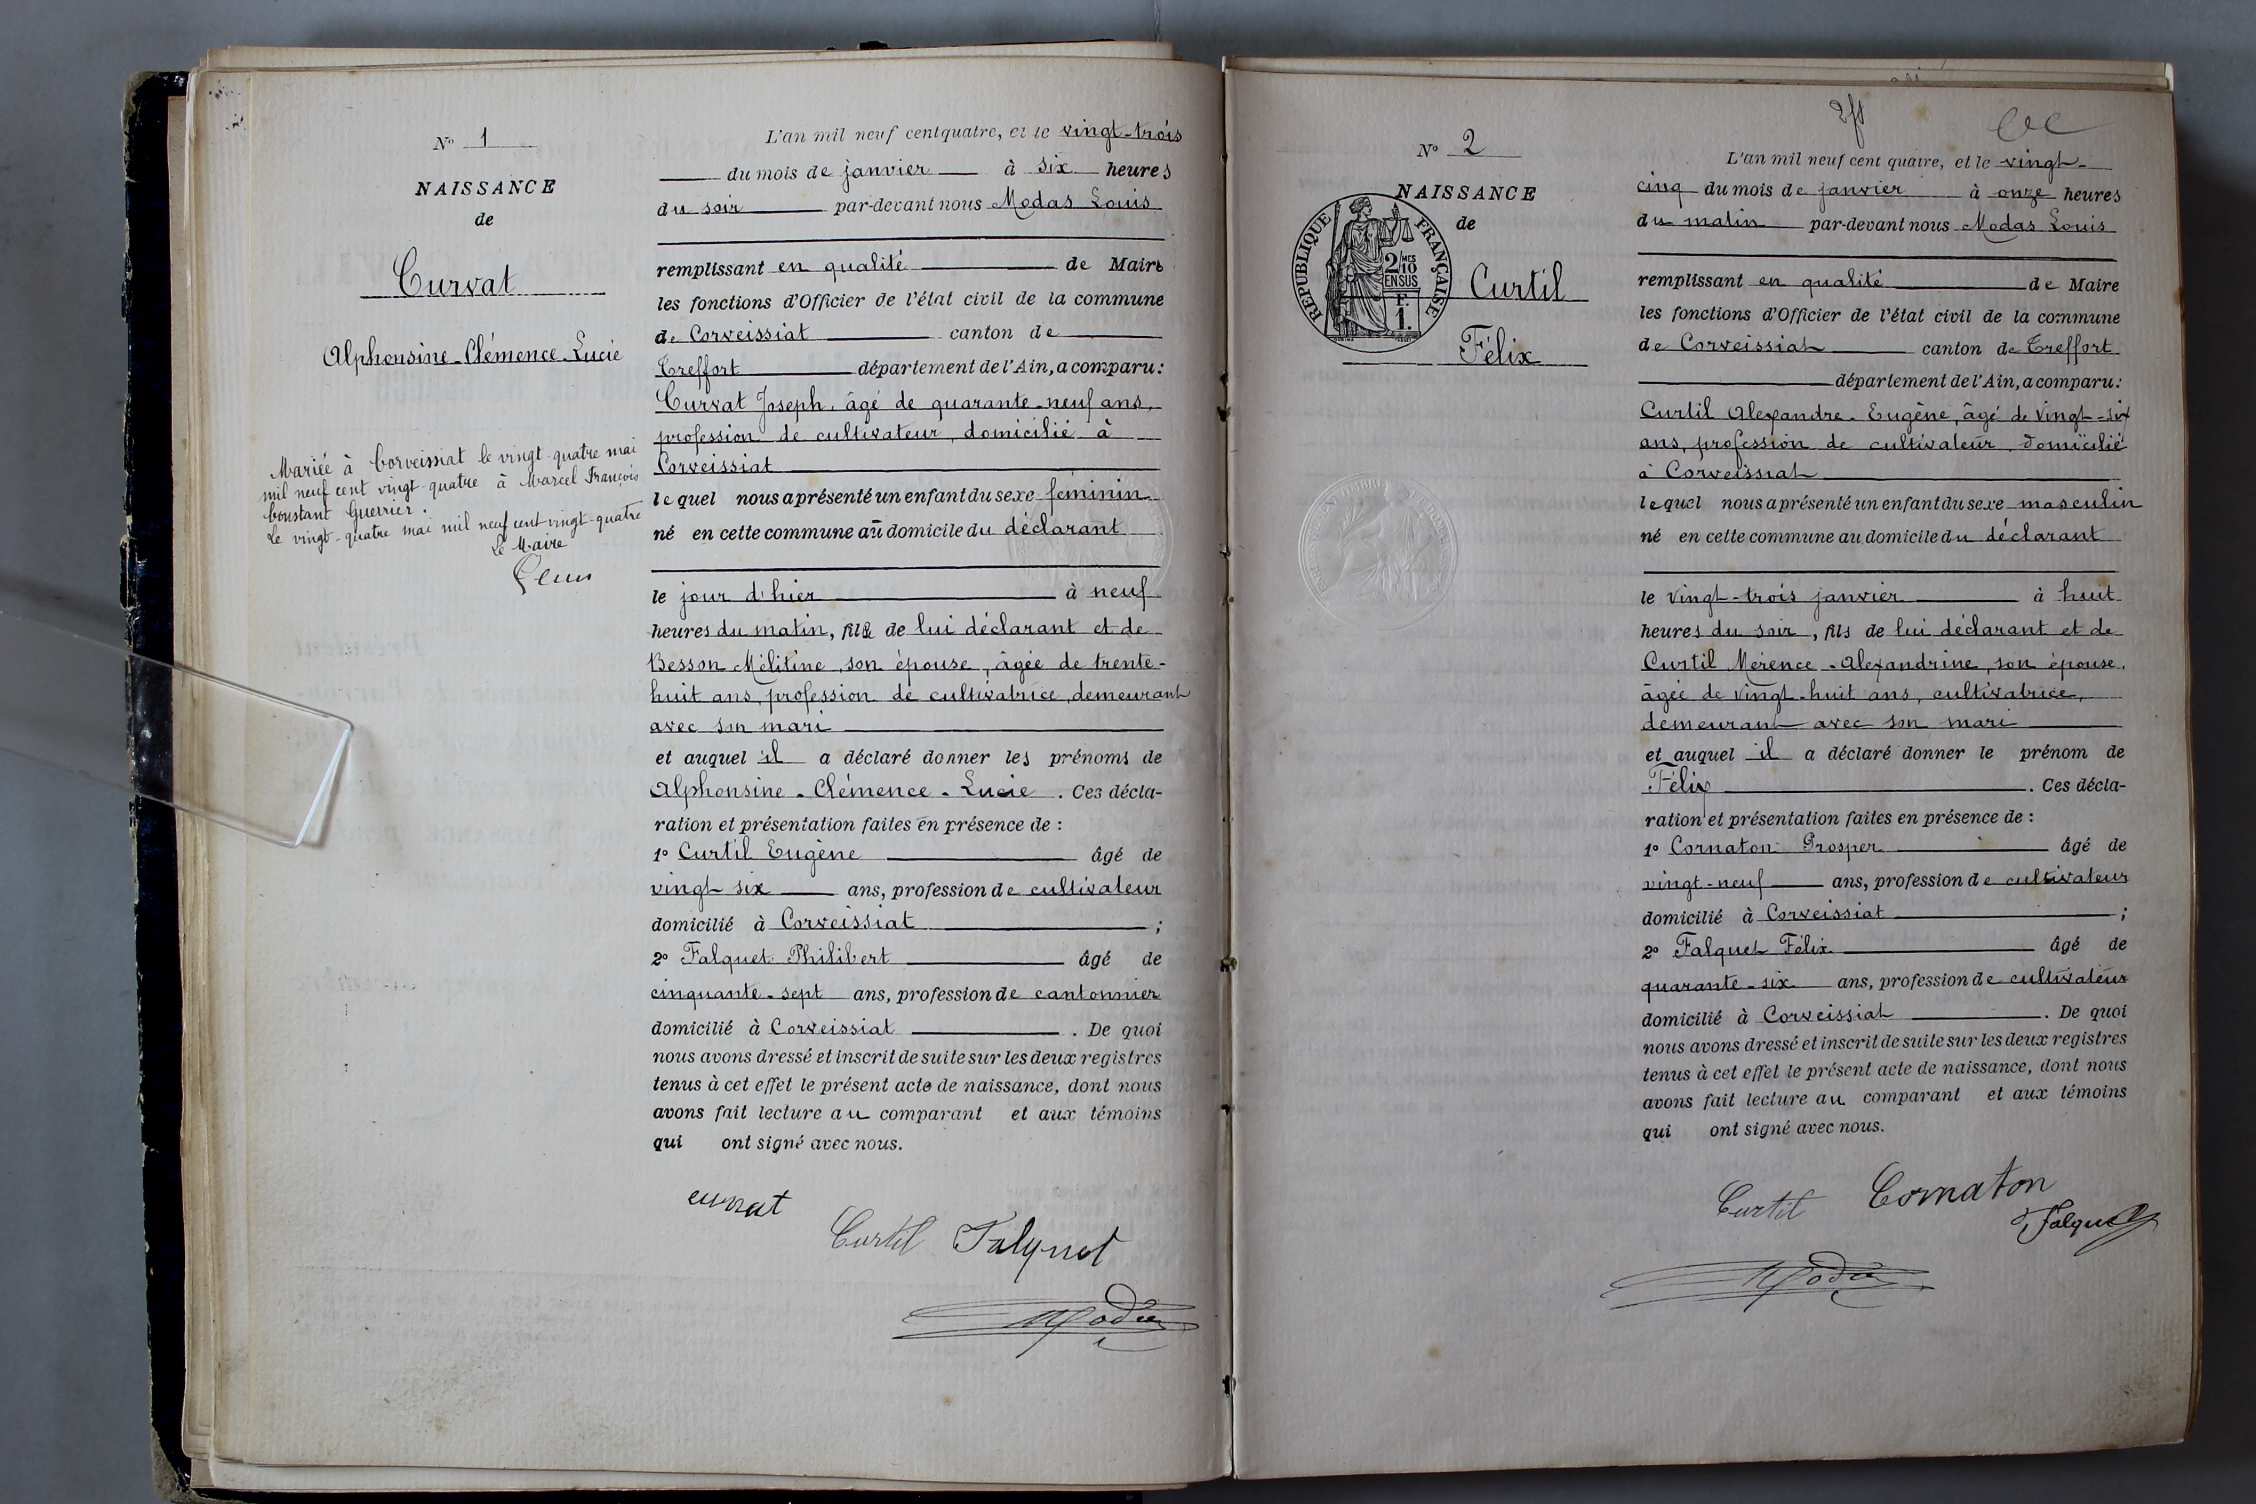 N° 1
NAISSANCE
de
Curvat
Alphonsine-Clémence-Lucie
Mariée à Corveissiat le vingt-quatre mai
mil neuf cent vingt-quatre à Marcel François
Constant Guerrier.
Le vingt-quatre mai mil neuf cent vingt-quatre
Le Maire
L'an mil neuf cent quatre, et le vingt-trois
du mois de janvier à six heures
du soir par-devant nous Modas Louis
remplissant en qualité de Maire
les fonctions d'Officier de l'état civil de la commune
de Corveissiat canton de
Treffort département de l'Ain, a comparu:
Curvat Joseph, âgé de quarante-neuf ans,
profession de cultivateur, domicilié à
Corveissiat
lequel nous a présenté un enfant du sexe féminin
né en cette commune au domicile du déclarant
le jour d'hier à neuf
heures du matin, fille de lui déclarant et de
Besson Mélitine, son épouse, âgée de trente-
huit ans, profession de cultivatrice, demeurant
avec son mari
et auquel il a déclaré donner les prénoms de
Alphonsine-Clémence-Lucie. Ces décla-
ration et présentation faites en présence de :
1° Curtil Eugène âgé de
vingt six ans, profession de cultivateur
domicilié à Corveissiat ;
2° Falquet Philibert âgé de
cinquante-sept ans, profession de cantonnier
domicilié à Corveissiat . De quoi
nous avons dressé et inscrit de suite sur les deux registres
tenus à cet effet le présent acte de naissance, dont nous
avons fait lecture au comparant et aux témoins
qui ont signé avec nous.
curvat
Curtil Falquet
Modas
N° 2
NAISSANCE
de
Curtil
Félix
RÉPUBLIQUE FRANÇAISE
2/10MES
EN SUS
F.
1.
L'an mil neuf cent quatre, et le vingt-
cinq du mois de janvier à onze heures
du matin par-devant nous Modas Louis
remplissant en qualité de Maire
les fonctions d'Officier de l'état civil de la commune
de Corveissiat canton de Treffort
département de l'Ain, a comparu:
Curtil Alexandre-Eugène, âgé de vingt-six
ans, profession de cultivateur, domicilié
à Corveissiat
lequel nous a présenté un enfant du sexe masculin
né en cette commune au domicile du déclarant
le vingt-trois janvier à huit
heures du soir, fils de lui déclarant et de
Curtil Mérence-Alexandrine, son épouse,
âgée de vingt-huit ans, cultivatrice,
demeurant avec son mari
et auquel il a déclaré donner le prénom de
Félix . Ces décla-
ration et présentation faites en présence de :
1° Cornaton Prosper âgé de
vingt-neuf ans, profession de cultivateur
domicilié à Corveissiat ;
2° Falquet Félix âgé de
quarante-six ans, profession de cultivateur
domicilié à Corveissiat . De quoi
nous avons dressé et inscrit de suite sur les deux registres
tenus à cet effet le présent acte de naissance, dont nous
avons fait lecture au comparant et aux témoins
qui ont signé avec nous.
Curtil Cornaton
Falquet
Modas